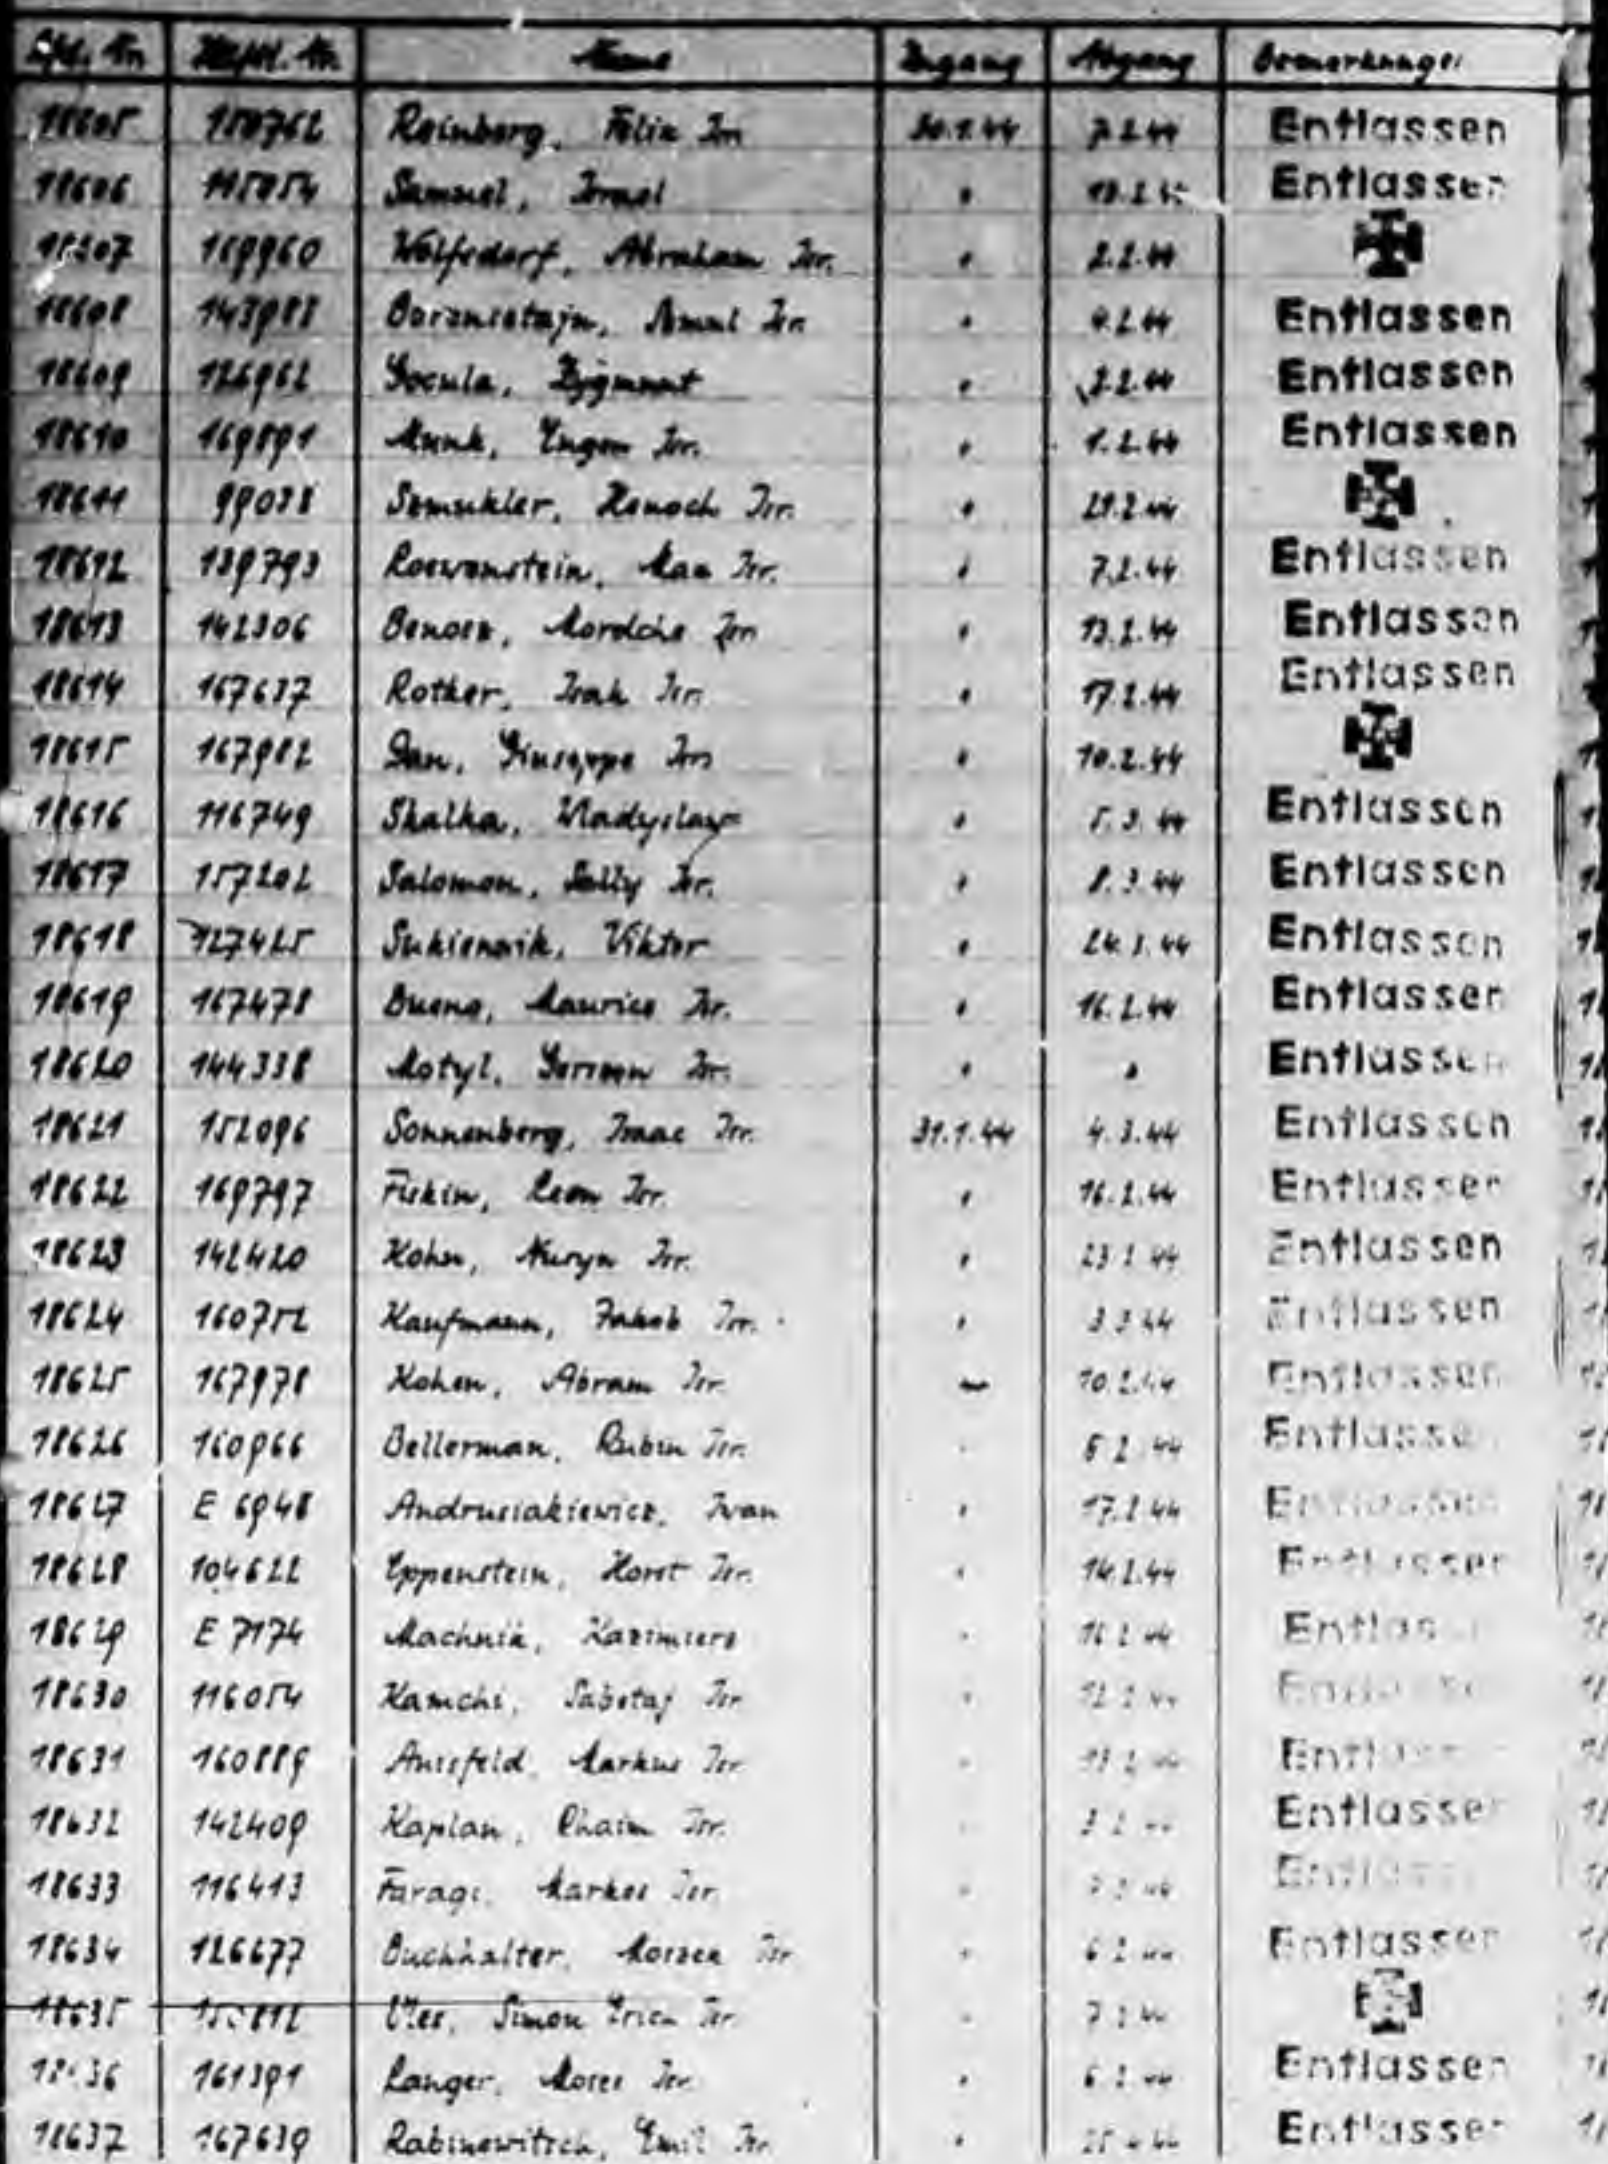 Lfd. Nr. Häftl. Nr. Name Zugang Abgang Bemerkungen
18605 150762 Reinberg, Felix Isr. 30.1.44 7.2.44 Entlassen
18606 Samuel, Israel " Entlassen
18607 169960 Wolfsdorf, Abraham Isr. " 2.2.44
18608 143988 Isr. " 4.2.44 Entlassen
18609 126962 Zygmunt " 2.2.44 Entlassen
18610 169891 Munk, Eugen Isr. " 1.2.44 Entlassen
18611 99038 Henoch Isr. " 29.2.44
18612 139793 Loewenstein, Max Isr. " 7.2.44 Entlassen
18613 142306 Mordche Isr. " 13.2.44 Entlassen
18614 167637 Rother, Isak Isr. " 17.2.44 Entlassen
18615 167982 Dan, Giuseppe Isr. " 10.2.44
18616 116749 Skalka, Wladyslaw " 5.3.44 Entlassen
18617 157202 Salomon, Sally Isr. " 8.3.44 Entlassen
18618 127425 Sukiennik, Viktor " Entlassen
18619 167478 Bueno, Maurice Isr. " 16.2.44 Entlassen
18620 144338 Motyl, Isr. " " Entlassen
18621 152096 Sonnenberg, Isaac Isr. 31.1.44 4.3.44 Entlassen
18622 169797 Fiskin, Leon Isr. " 16.2.44 Entlassen
18623 142420 Kohn, Isr. " 23.2.44 Entlassen
18624 160752 Kaufmann, Jakob Isr. " 3.3.44 Entlassen
18625 167978 Kohen, Abram Isr. " 10.2.44 Entlassen
18626 160966 Bellerman, Rubin Isr. " 2.44 Entlassen
18627 E 6948 Andrusiakiewicz, Iwan " 17.2.44 Entlassen
18628 104622 Eppenstein, Horst Isr. " 14.2.44 Entlassen
18629 E 7174 Machnik, Kazimierz " 16.2.44 Entlassen
18630 116054 Kamchi, Sabetaj Isr. " 12.2.44 Entlassen
18631 160889 Ansfeld, Markus Isr. " Entlassen
18632 142409 Kaplan, Chaim Isr. " Entlassen
18633 116413 Faragi, Markos Isr. " Entlassen
18634 126677 Buchhalter, Isr. " 6.2.44 Entlassen
18635 Vles, Simon Erich Isr. "
18636 161391 Langer, Moses Isr. " 6.2.44 Entlassen
18637 167639 Rabinowitsch, Emil Isr. " Entlassen